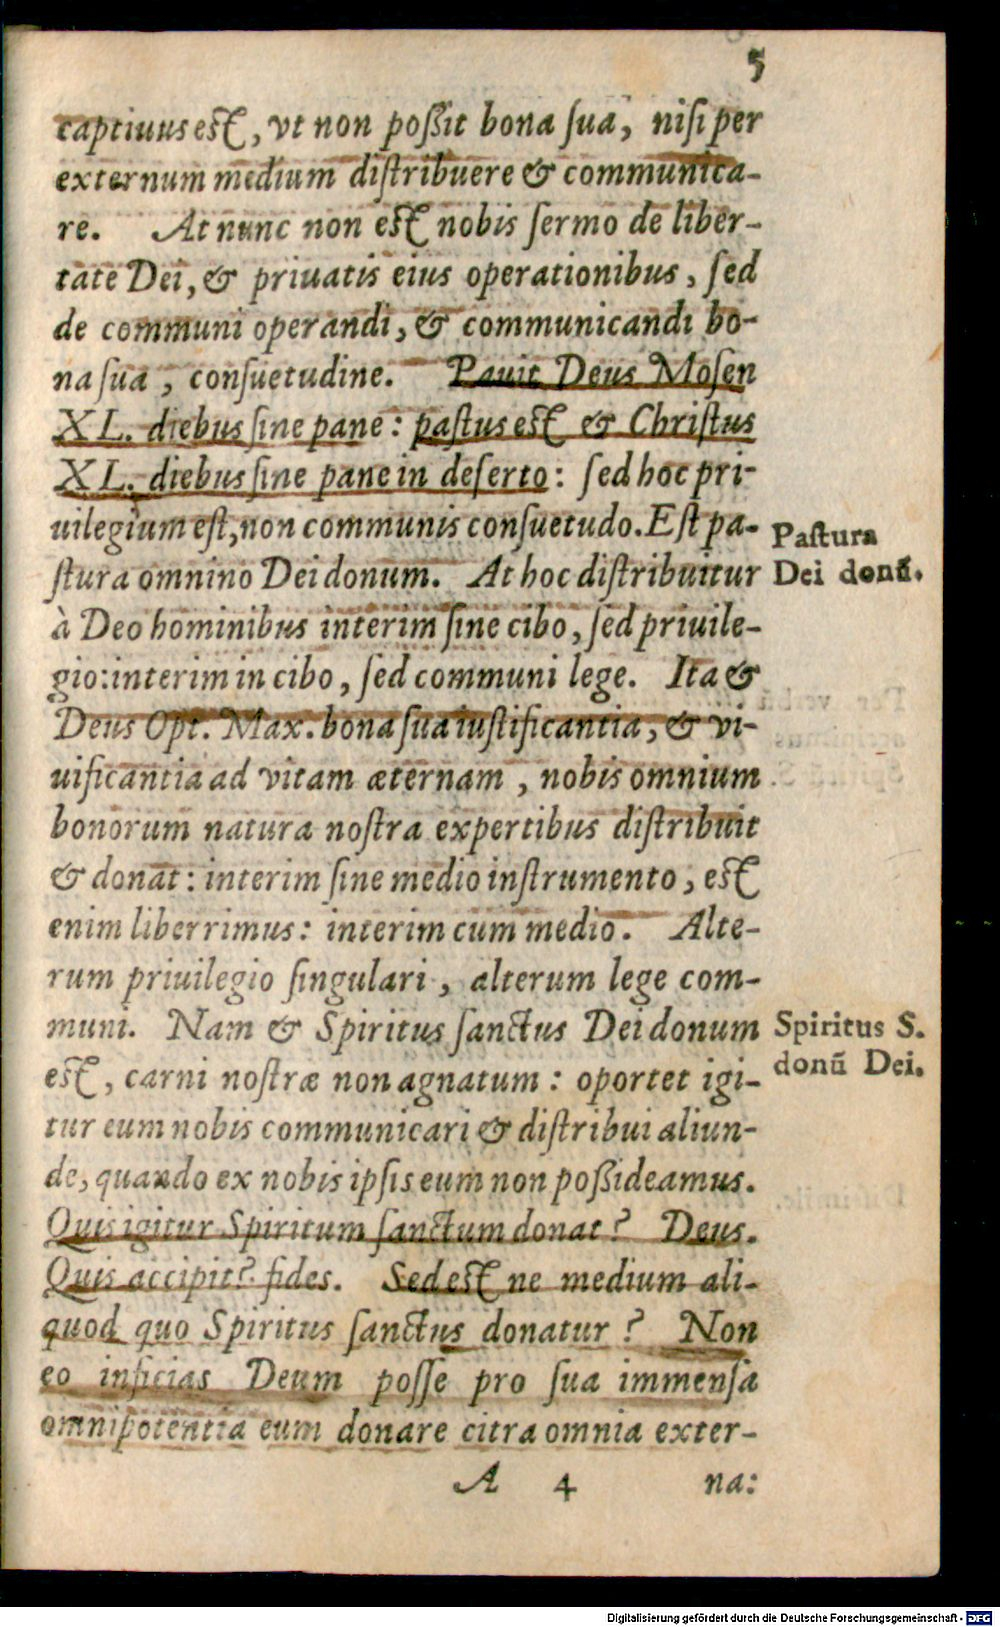 5
captiuus est, vt non poßit bona sua, nisi per
externum medium distribuere & communica-
re. At nunc non est nobis sermo de liber-
tate Dei, & priuatis eius operationibus, sed
de communi operandi, & communicandi bo-
na sua, consuetudine. Pauit Deus Mosen
XL. diebus sine pane: pastus est & Christus
XL. diebus sine pane in deserto: sed hoc pri-
uilegium est, non communis consuetudo. Est pa-
stura omnino Dei donum. At hoc distribuitur
à Deo hominibus interim sine cibo, sed priuile-
gio: interim in cibo, sed communi lege. Ita &
Deus Opt. Max. bona sua iustificantia, & vi-
uificantia ad vitam æternam, nobis omnium
bonorum natura nostra expertibus distribuit
& donat: interim sine medio instrumento, est
enim liberrimus: interim cum medio. Alte-
rum priuilegio singulari, alterum lege com-
muni. Nam & Spiritus sanctus Dei donum
est, carni nostræ non agnatum: oportet igi-
tur eum nobis communicari & distribui aliun-
de, quando ex nobis ipsis eum non poßideamus.
Quis igitur Spiritum sanctum donat? Deus.
Quis accipit? fides. Sed est ne medium ali-
quod quo Spiritus sanctus donatur? Non
eo inficias Deum posse pro sua immensa
omnipotentia eum donare citra omnia exter-
A 4 na:
Pastura
Dei donū.
Spiritus S.
donū Dei.
Digitalisierung gefördert durch die Deutsche Forschungsgemeinschaft - DFG